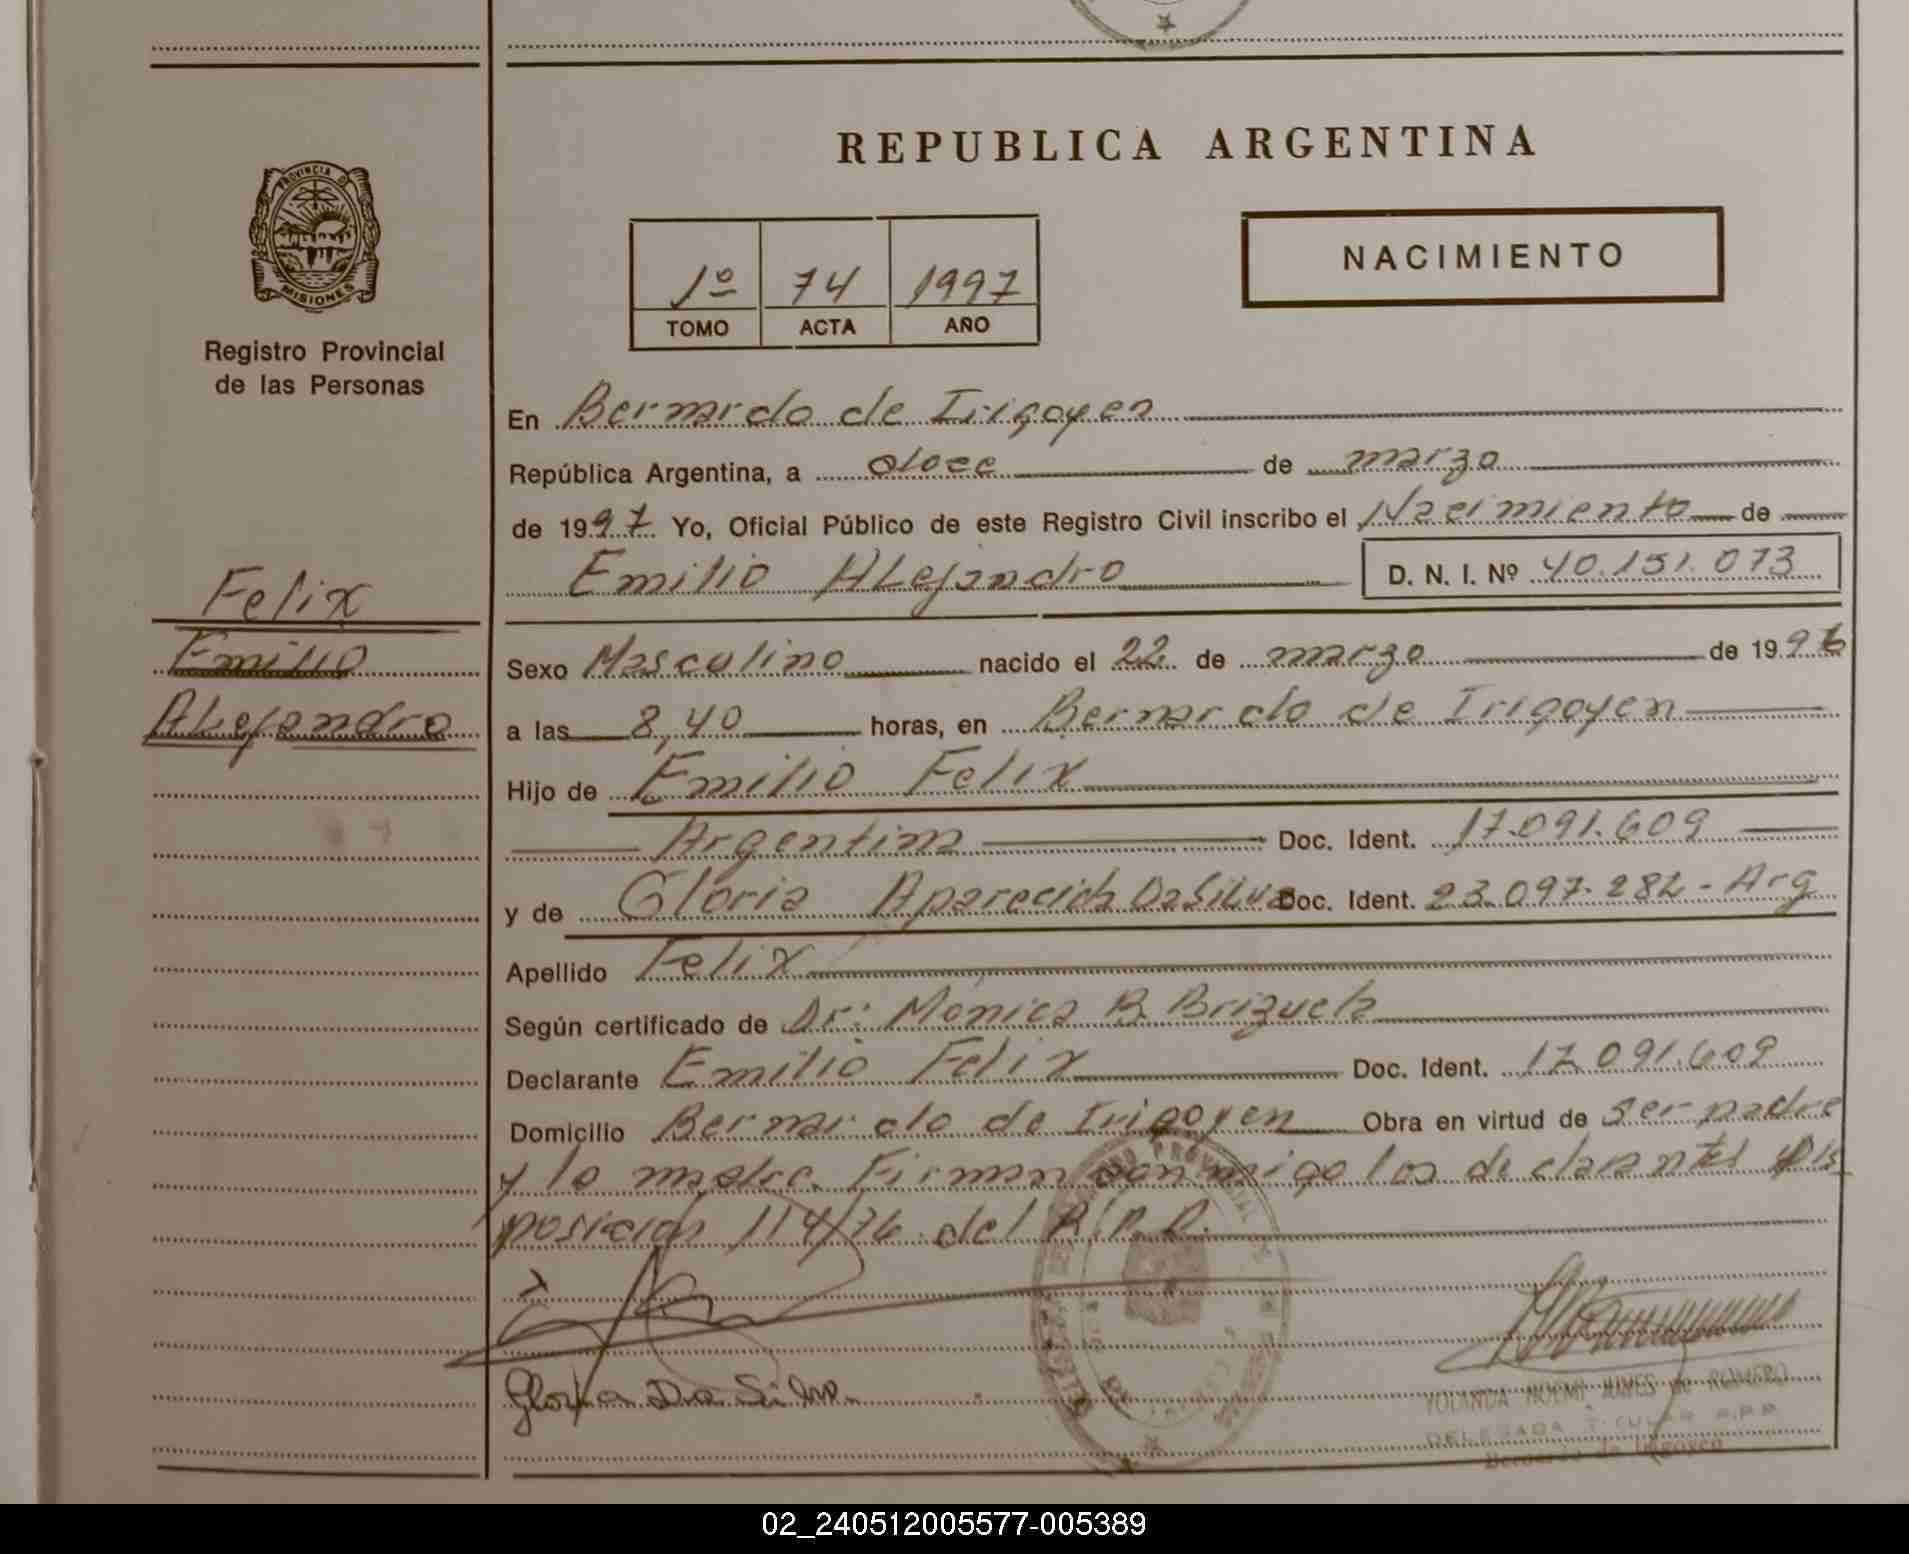 REPUBLICA ARGENTINA
PROVINCIA DE
MISIONES
Registro Provincial
de las Personas
NACIMIENTO
1º 74 1997
TOMO ACTA AÑO
En Bernardo de Irigoyen
República Argentina, a doce de marzo
de 1997 Yo, Oficial Público de este Registro Civil inscribo el Nacimiento de
Emilio ALejandro D. N. I. Nº 40.151.073
Felix
Emilio
ALejandro
Sexo Masculino nacido el 22 de marzo de 1996
a las 8,40 horas, en Bernardo de Irigoyen
Hijo de Emilio Felix
Argentina Doc. Ident. 17.091.609
y de Gloria Aparecida Da Silva Doc. Ident. 23.097.282 - Arg
Apellido Felix
Según certificado de Dr: Mónica B. Brizuela
Declarante Emilio Felix Doc. Ident. 17.091.609
Domicilio Bernardo de Irigoyen Obra en virtud de ser padre
y la madre. Firman conmigo los declarantes
posición 114/76 del R.P.P.
Gloria Da Silva
YOLANDA NOEMI de ROMERO
DELEGADA TITULAR R.P.P.
Bernardo de Irigoyen
02_240512005577-005389